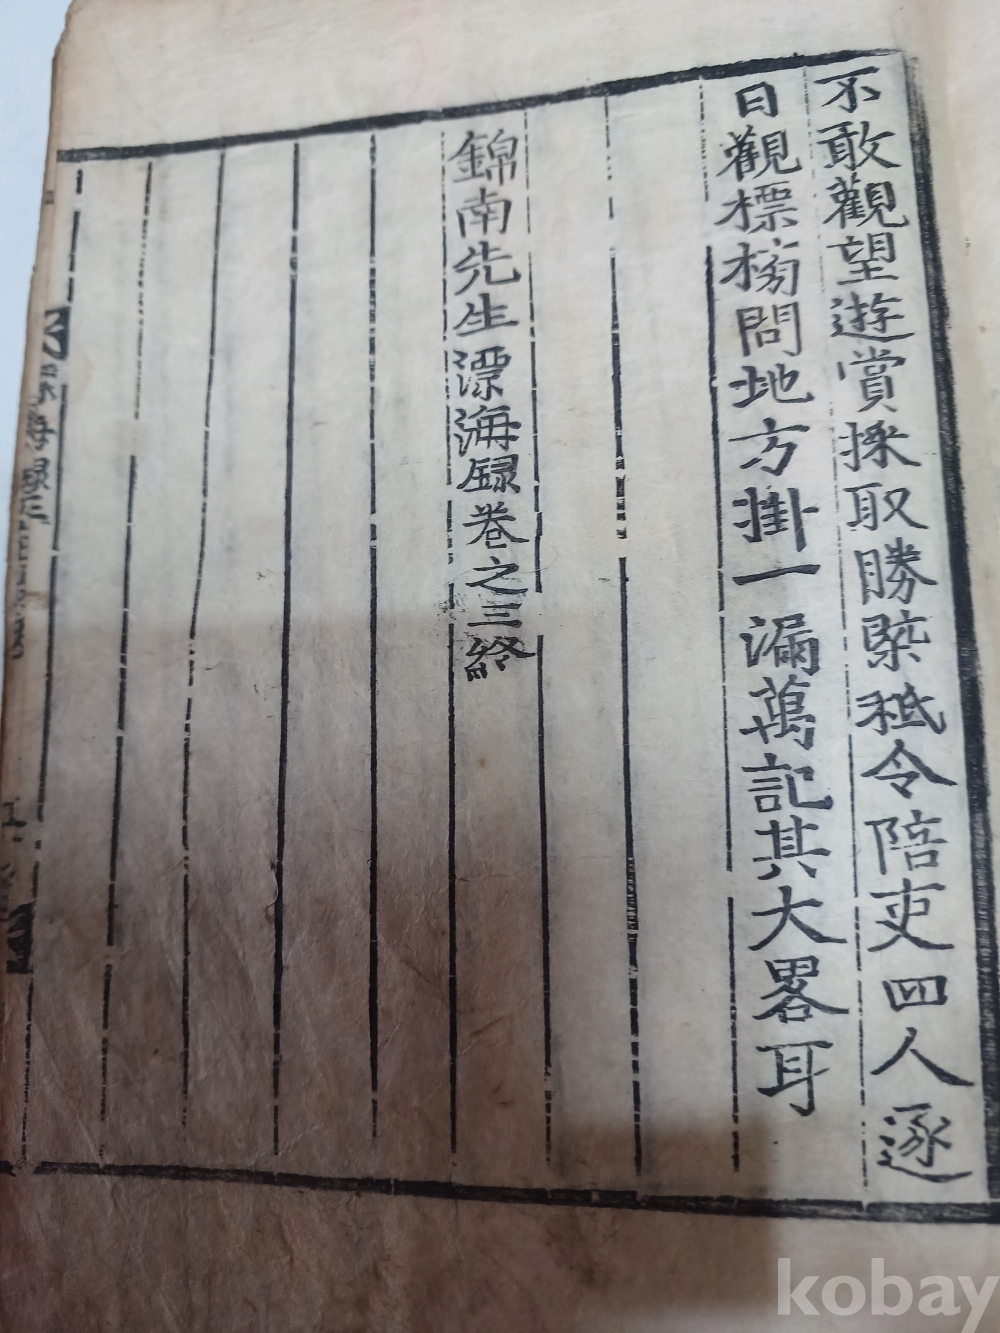 不敢觀望遊賞採取勝槩秪令陪吏四人逐
日觀標榜問地方掛一漏萬記其大畧耳
錦南先生漂海録卷之三終
kobay